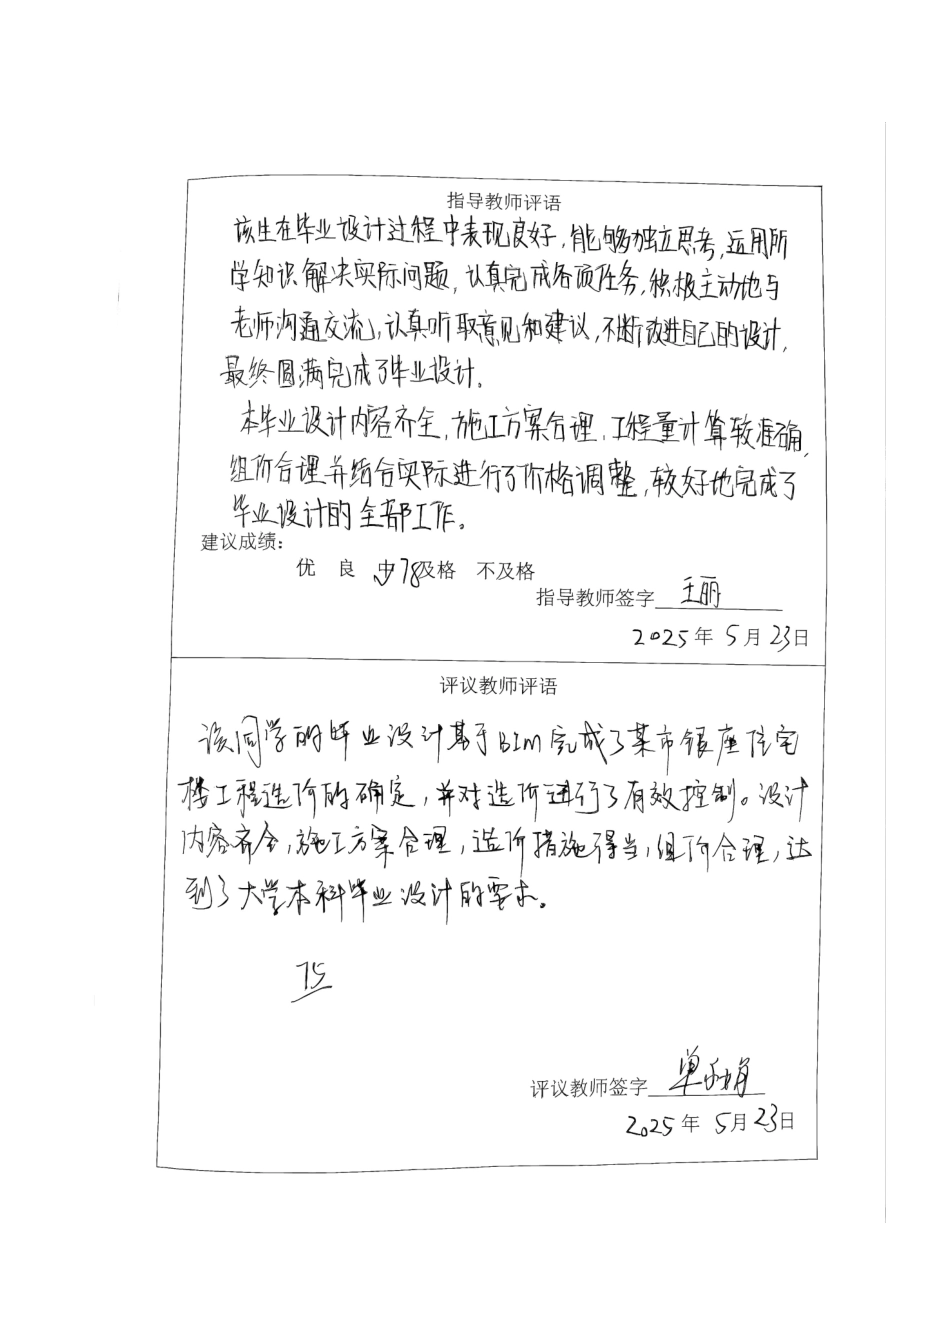 指导教师评语
该生在毕业设计过程中表现良好,能够独立思考,运用所
学知识解决实际问题,认真完成各项任务,积极主动地与
老师沟通交流,认真听取意见和建议,不断改进自己的设计,
最终圆满完成了毕业设计。
本毕业设计内容齐全,施工方案合理,工程量计算较准确,
组价合理并结合实际进行了价格调整,较好地完成了
毕业设计的全部工作。
建议成绩:
优 良 中78及格 不及格
指导教师签字 王丽
2025年 5月23日
评议教师评语
该同学的毕业设计基于BIM完成了某市银座住宅
楼工程造价的确定,并对造价进行了有效控制。设计
内容齐全,施工方案合理,造价措施得当,组价合理,达
到了大学本科毕业设计的要求。
75
评议教师签字 单
2025年 5月23日